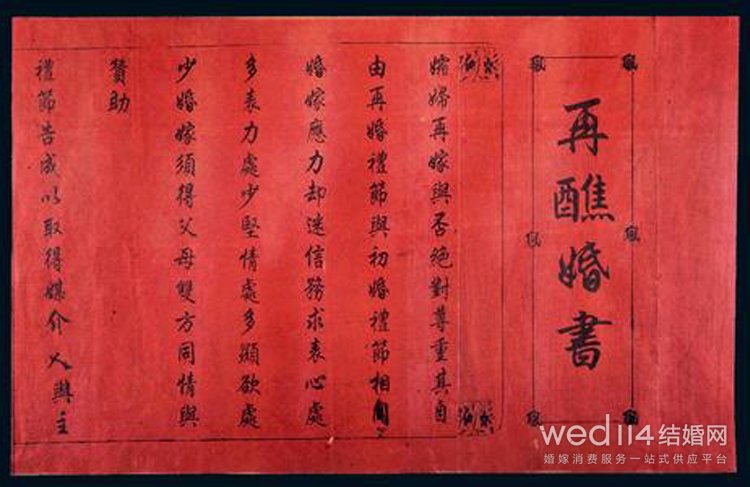 再醮婚書
孀婦再嫁與否絕對尊重其自
由再婚禮節與初婚禮節相同
婚嫁應力却迷信務求表心處
多表力處少堅情處多顯欲處
少婚嫁須得父母雙方同情與
贊助
禮節告成以取得媒介人與主
wed114结婚网
婚嫁消费服务一站式供应平台